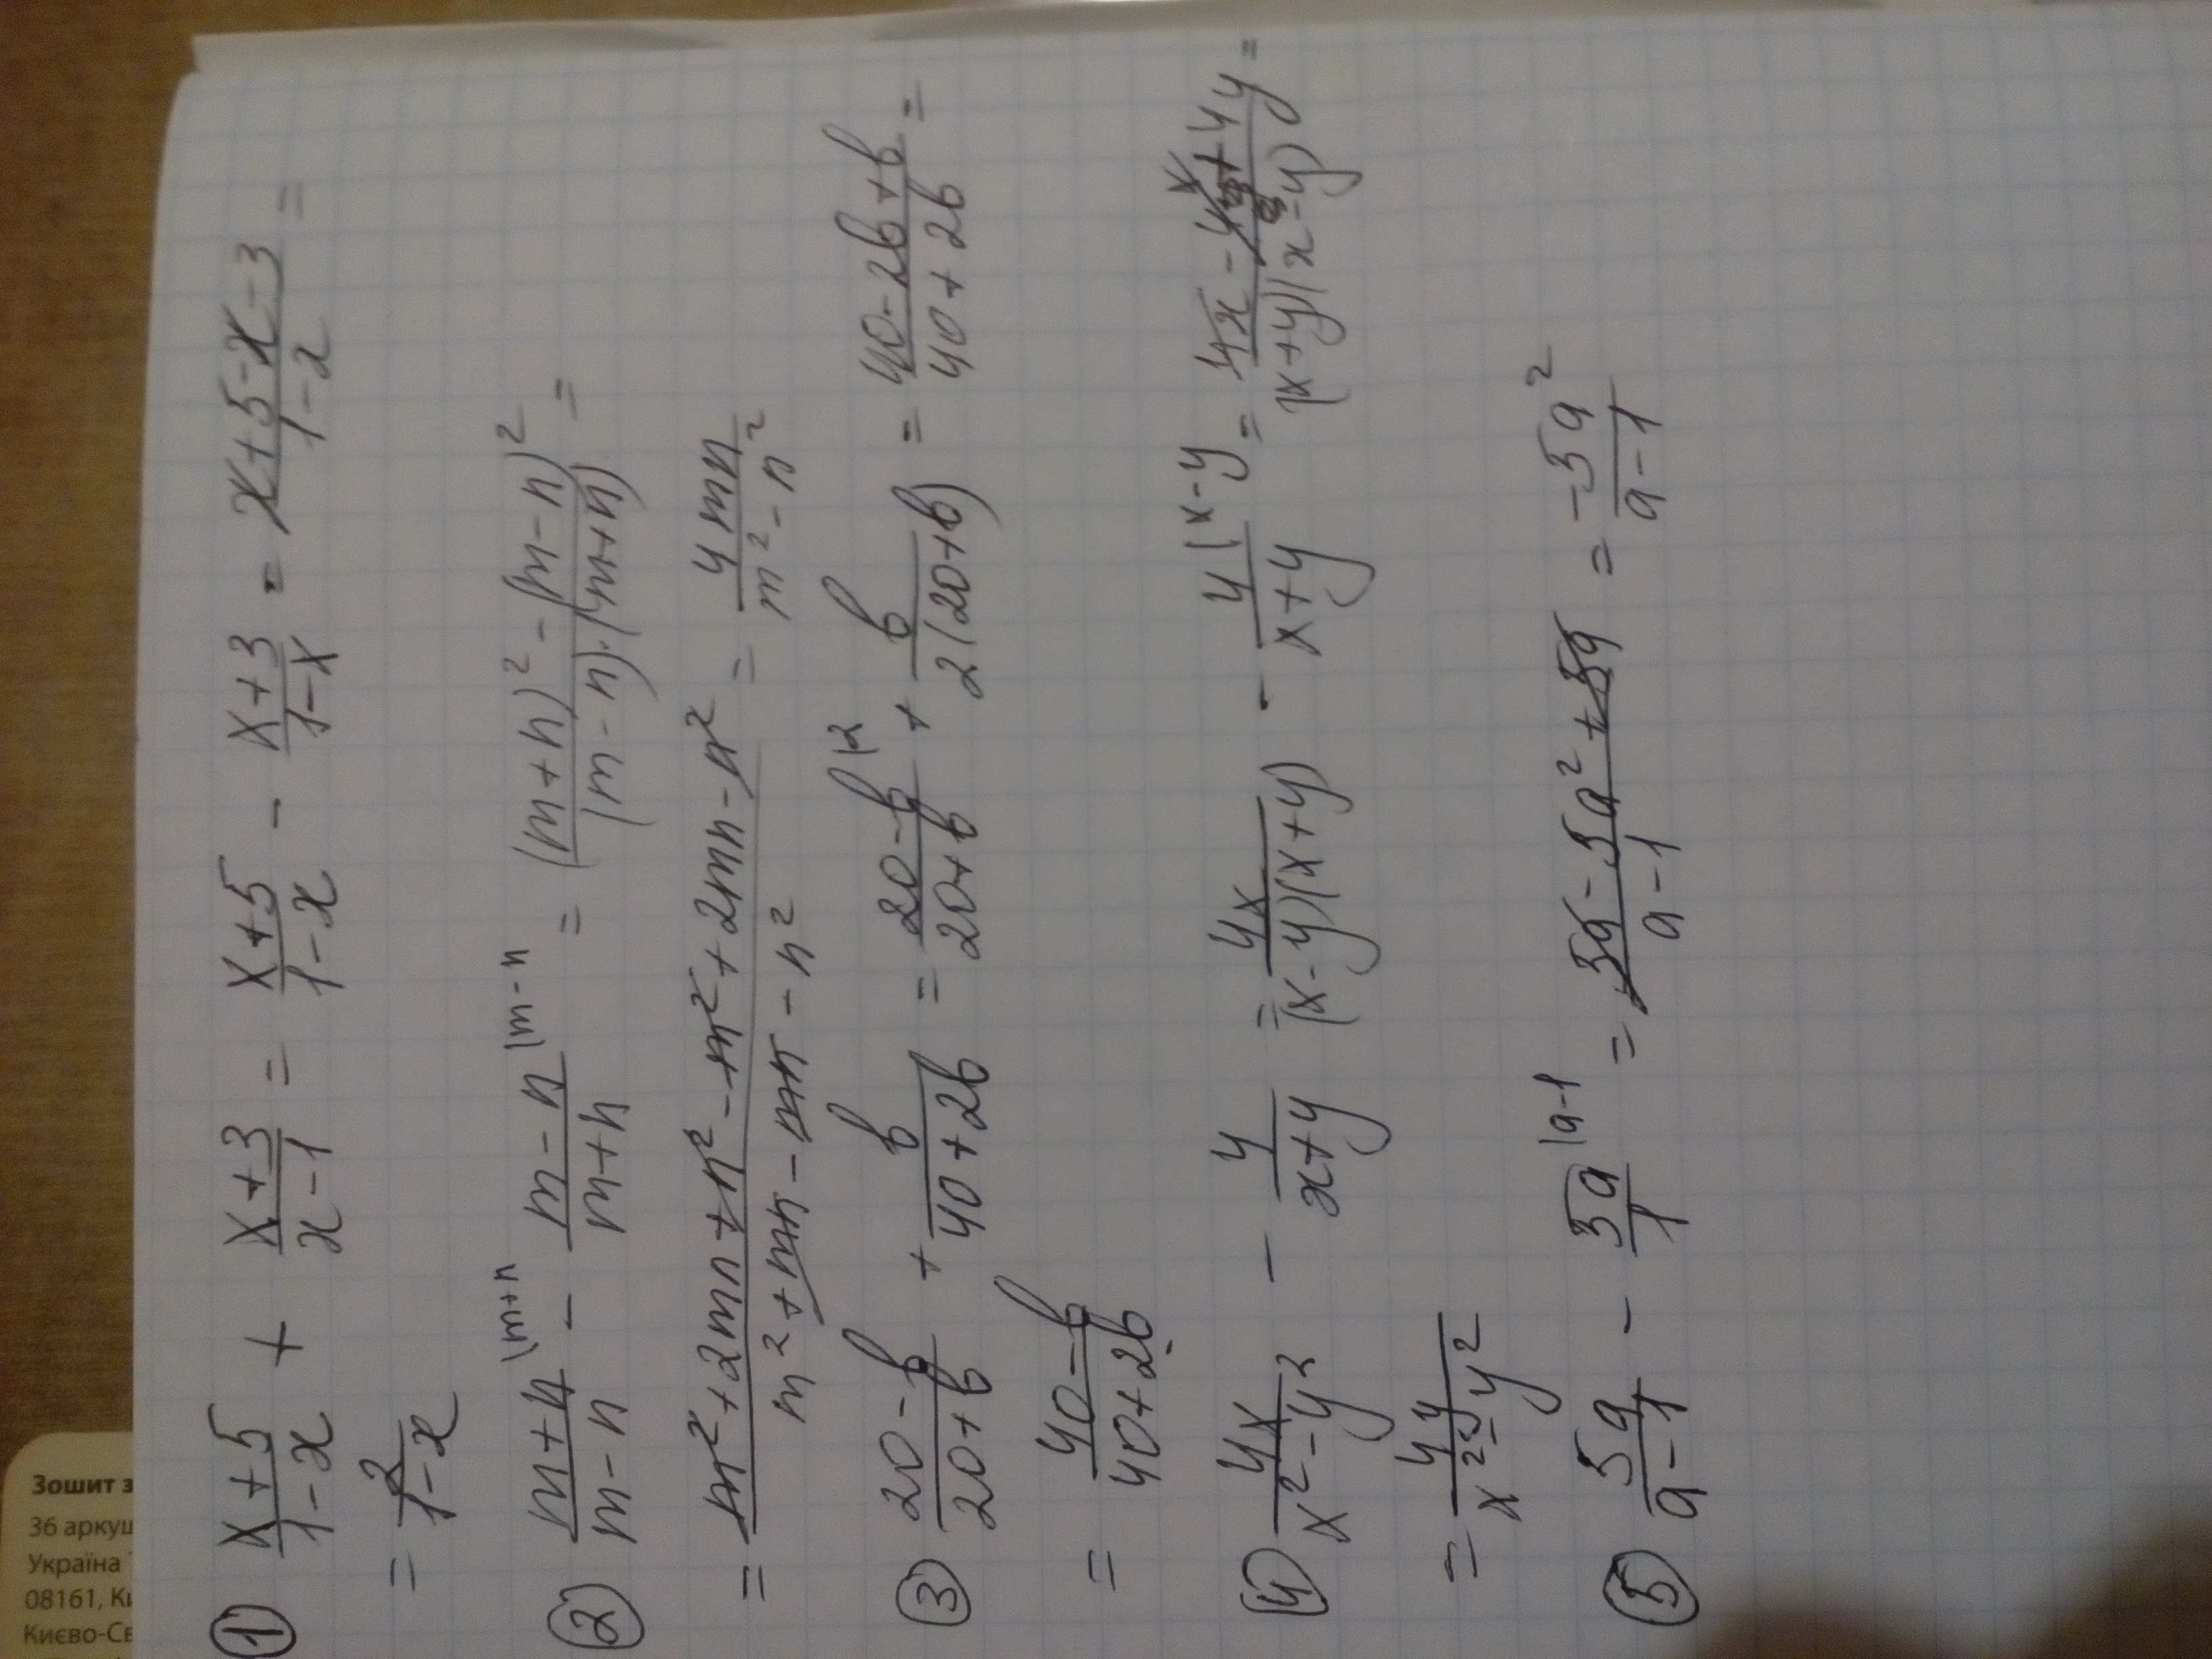 ① (x+5)/(1-x) + (x+3)/(x-1) = (x+5)/(1-x) - (x+3)/(1-x) = (x+5-x-3)/(1-x) =
= 2/(1-x)
② (m+n)/(m-n) \m+n - (m-n)/(m+n) |m-n = ((m+n)² - (m-n)²)/((m-n)·(m+n)) =
= (m²+2mn+n²-m²+2mn-n²)/(m²+mn-mn-n²) = 4mn/(m²-n²)
③ (20-b)/(20+b) + b/(40+2b) = (20-b)/(20+b) |2 + b/(2(20+b)) = (40-2b+b)/(40+2b) =
= (40-b)/(40+2b)
④ 4x/(x²-y²) - 4/(x+y) = 4x/((x-y)(x+y)) - 4/(x+y) |x-y = (4x-4x+4y)/((x+y)(x-y)) =
= 4y/(x²-y²)
⑤ 3a/(a-1) - 3a/1 |a-1 = (3a-3a²+3a)/(a-1) = -3a²/(a-1)
Зошит з
36 аркуш
Україна
08161, Ки
Києво-Св